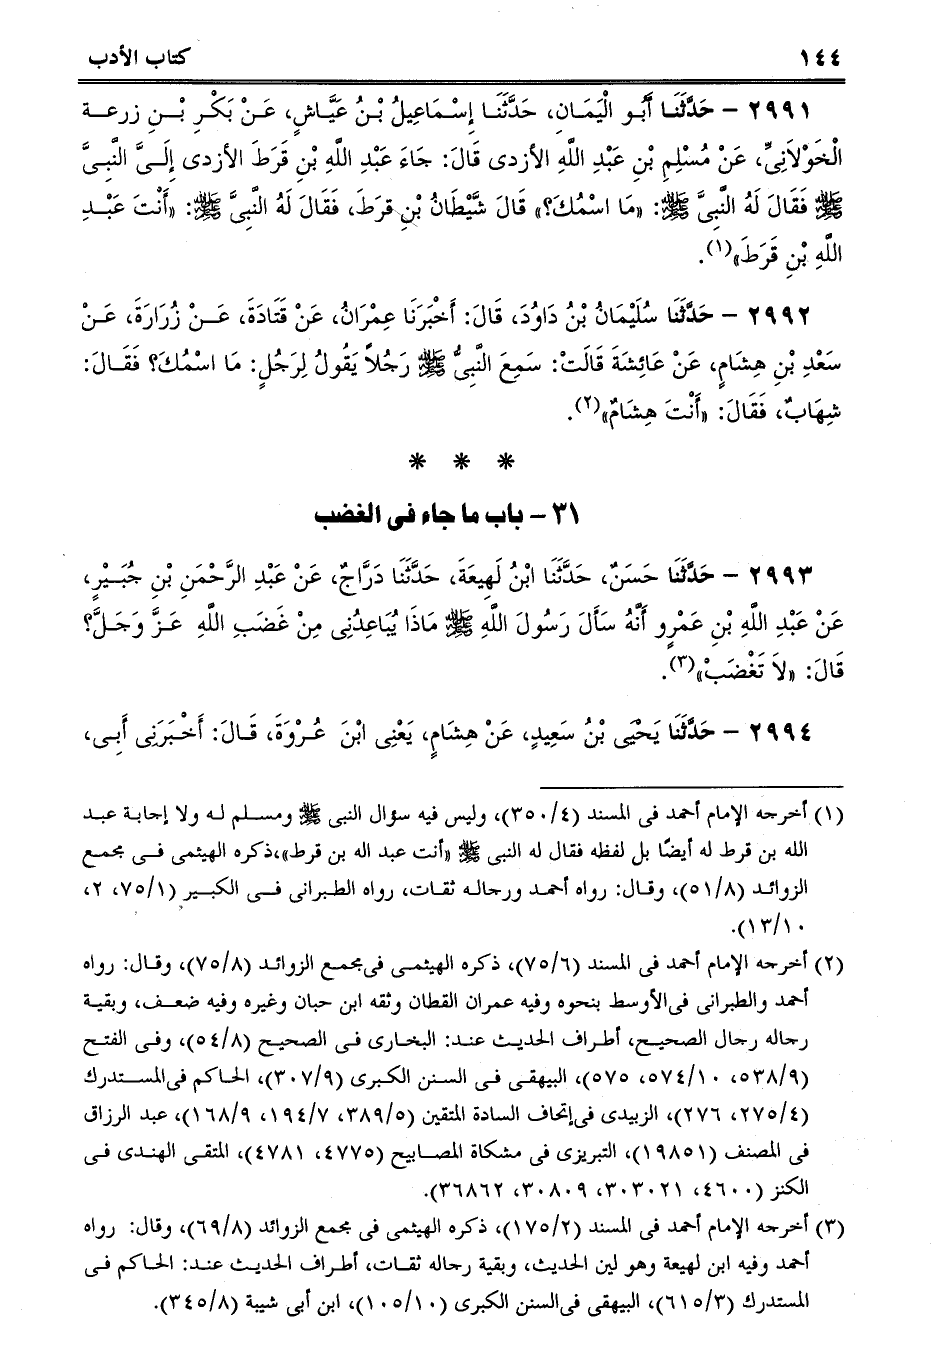 ١٤٤ كتاب الأدب
٢٩٩١ - حَدَّثَنَا أَبُو الْيَمَان، حَدَّثَنَا إِسْمَاعِيلُ بْنُ عَيَّاشٍ، عَنْ بَكْرِ بْنِ زرعة
الْخَوْلاَنِىِّ، عَنْ مُسْلِمِ بْنِ عَبْدِ اللَّهِ الأزدى قَالَ: جَاءَ عَبْدِ اللَّهِ بْنِ قَرَطَ الأزدى إِلَىَّ النَّبِىَّ
ﷺ فَقَالَ لَهُ النَّبِىَّ ﷺ: «مَا اسْمُكَ؟» قَالَ شَّيْطَانُ بْنِ قرطَ، فَقَالَ لَهُ النَّبِىَّ ﷺ: «أَنْتَ عَبْدِ
اللَّهِ بْنِ قَرَطَ»(١).
٢٩٩٢ - حَدَّثَنَا سُلَيْمَانُ بْنُ دَاوُدَ، قَالَ: أَخْبَرَنَا عِمْرَانُ، عَنْ قَتَادَةَ، عَنْ زُرَارَةَ، عَنْ
سَعْدِ بْنِ هِشَامٍ، عَنْ عَائِشَةَ قَالَتْ: سَمِعَ النَّبِىُّ ﷺ رَجُلاً يَقُولُ لِرَجُلٍ: مَا اسْمُكَ؟ فَقَالَ:
شِهَابٌ، فَقَالَ: «أَنْتَ هِشَامٌ»(٢).
* * *
٣١ - باب ما جاء فى الغضب
٢٩٩٣ - حَدَّثَنَا حَسَنٌ، حَدَّثَنَا ابْنُ لَهِيعَةَ، حَدَّثَنَا دَرَّاجٌ، عَنْ عَبْدِ الرَّحْمَنِ بْنِ جُبَيْرٍ،
عَنْ عَبْدِ اللَّهِ بْنِ عَمْرٍو أَنَّهُ سَأَلَ رَسُولَ اللَّهِ ﷺ مَاذَا يُبَاعِدُنِى مِنْ غَضَبِ اللَّهِ عَزَّ وَجَلَّ؟
قَالَ: «لاَ تَغْضَبْ»(٣).
٢٩٩٤ - حَدَّثَنَا يَحْيَى بْنُ سَعِيدٍ، عَنْ هِشَامٍ، يَعْنِى ابْنَ عُرْوَةَ، قَالَ: أَخْبَرَنِى أَبِى،
(١) أخرجه الإمام أحمد فى المسند (٣٥٠/٤)، وليس فيه سؤال النبى ﷺ ومسلم له ولا إجابة عبد
الله بن قرط له أيضًا بل لفظه فقال له النبى ﷺ «أنت عبد اله بن قرط»،ذكره الهيثمى فى مجمع
الزوائد (٥١/٨)، وقال: رواه أحمد ورجاله ثقات، رواه الطبرانى فى الكبير (٧٥/١، ٢،
١٣/١٠).
(٢) أخرجه الإمام أحمد فى المسند (٧٥/٦)، ذكره الهيثمى فى مجمع الزوائد (٧٥/٨)، وقال: رواه
أحمد والطبرانى فى الأوسط بنحوه وفيه عمران القطان وثقه ابن حبان وغيره وفيه ضعف، وبقية
رجاله رجال الصحيح، أطراف الحديث عند: البخارى فى الصحيح (٥٤/٨)، وفى الفتح
(٥٣٨/٩، ٥٧٤/١٠، ٥٧٥)، البيهقى فى السنن الكبرى (٣٠٧/٩)، الحاكم فى المستدرك
(٢٧٥/٤، ٢٧٦)، الزبيدى فى إتحاف السادة المتقين (٣٨٩/٥، ١٩٤/٧، ١٦٨/٩)، عبد الرزاق
فى المصنف (١٩٨٥١)، التبريزى فى مشكاة المصابيح (٤٧٧٥، ٤٧٨١)، المتقى الهندى فى
الكنز (٤٦٠٠، ٣٠٣٠٢١، ٣٠٨٠٩، ٣٦٨٦٢).
(٣) أخرجه الإمام أحمد فى المسند (١٧٥/٢)، ذكره الهيثمى فى مجمع الزوائد (٦٩/٨)، وقال: رواه
أحمد وفيه ابن لهيعة وهو لين الحديث، وبقية رجاله ثقات، أطراف الحديث عند: الحاكم فى
المستدرك (٦١٥/٣)، البيهقى فى السنن الكبرى (١٠٥/١٠)، ابن أبى شيبة (٣٤٥/٨).